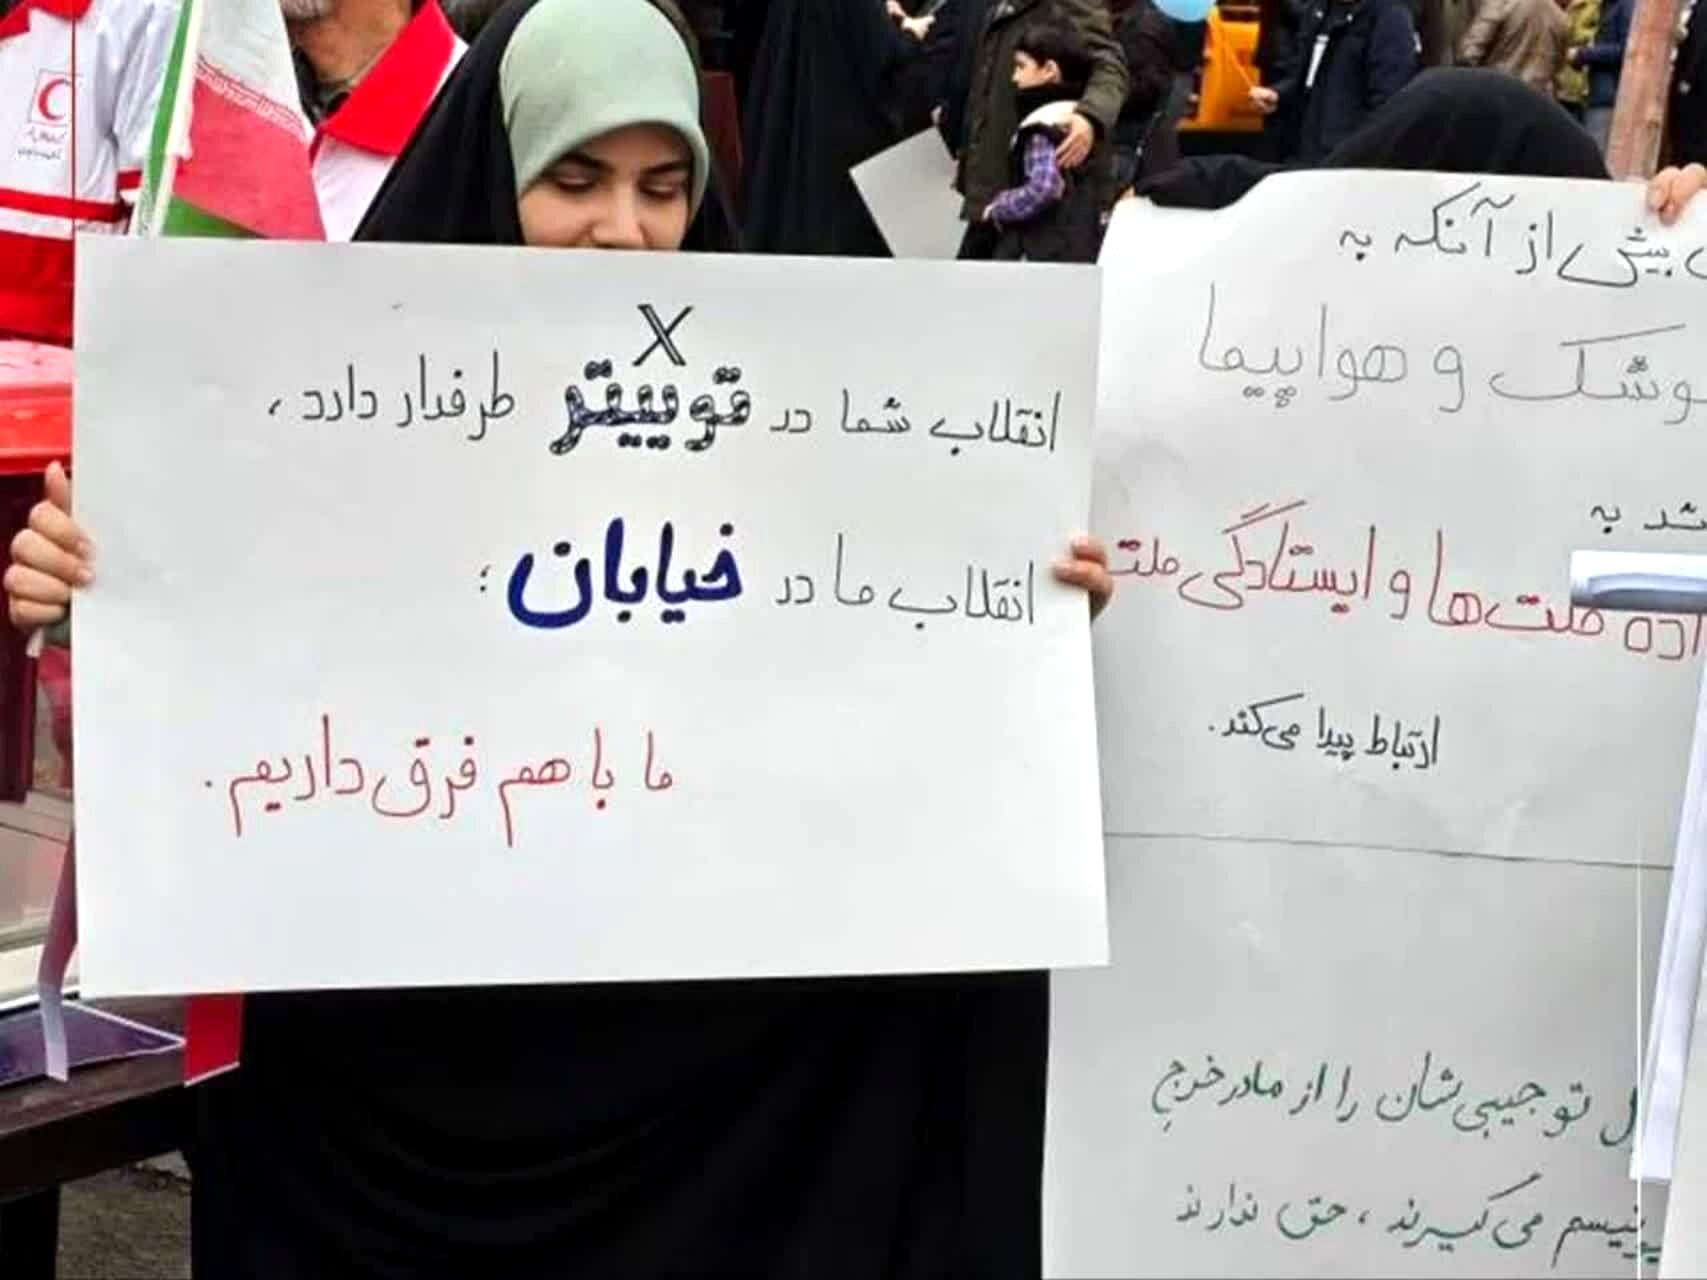 X
انقلاب شما در توییتر طرفدار دارد،
انقلاب ما در خیابان؛
ما با هم فرق داریم.
بیش از آنکه به
و هواپیما
شد به
ملت‌ها و ایستادگی ملت
ارتباط پیدا می‌کند.
تو جیبی‌شان را از مادر خرجِ
می‌گیرند، حق ندارند